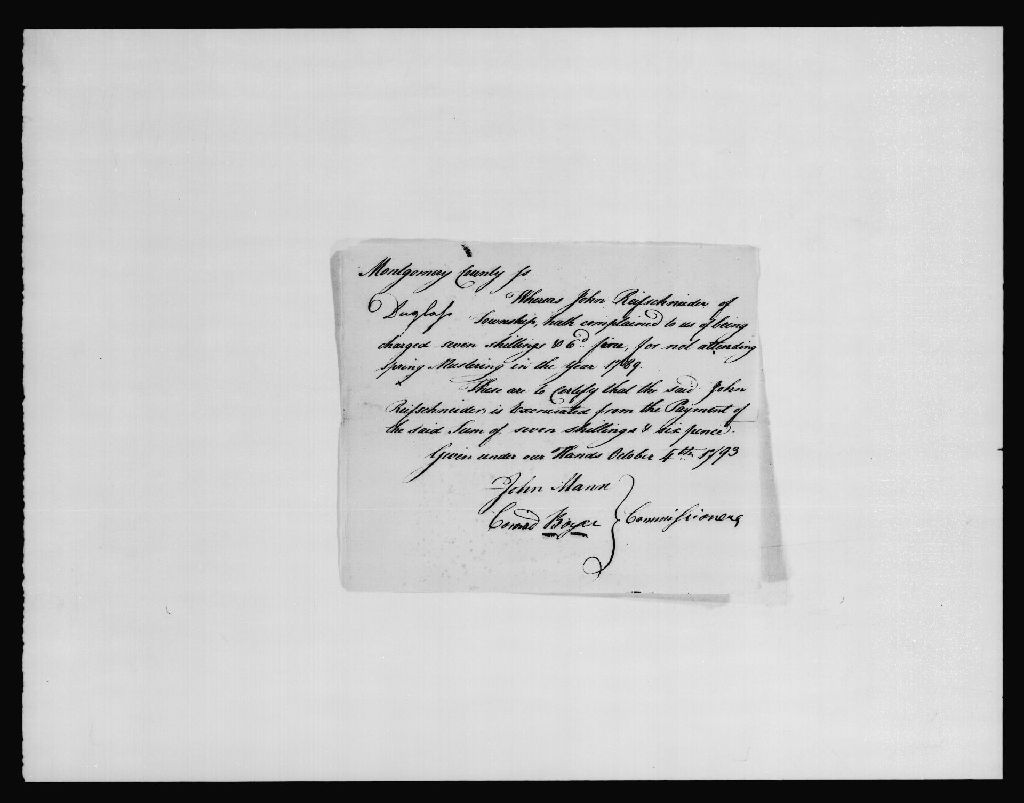 Montgomery County ss
Whereas John Reifschneider of
Duglass Township, hath complained to us of being
charged seven shillings & 6d fine, for not attending
Spring Mustering in the Year 1789.
These are to Certify that the said John
Reifschneider is Exonerated from the Payment of
the said Sum of seven shillings & six pence.
Given under our Hands October 4th 1793
John Mann
Conrad Boyer } Commissioners